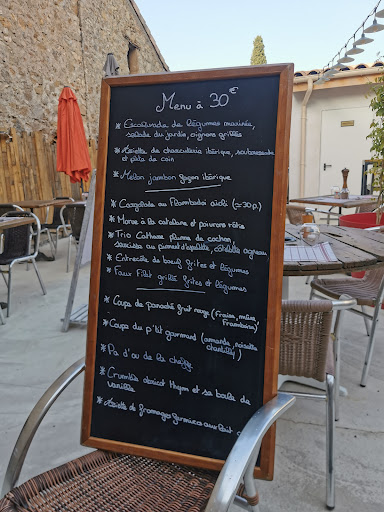 Menu à 30€
* Escalivada de légumes marinée,
salade du jardin, oignons grillés
* Assiette de charcuterie ibérique, soubressade
et pâté de coin
* Melon jambon façon ibérique
* Cargolade au Flambadou aïoli (≃30 p.)
* Morue à la catalane et poivrons rôtis
* Trio Cathare plume de cochon,
saucisse au piment d'espelette, côtelette agneau
* Entrecôte de bœuf frites et légumes
* Faux Filet grillé frites et légumes
* Coupe de panaché fruit rouge (fraise, mûre,
framboise)
* Coupe du p'tit gourmand (amande, noisette
chantilly)
* Pa d'ou de la cheffe
* Crumble abricot thym et sa boule de
vanille
* Assiette de fromages fermiers au lait